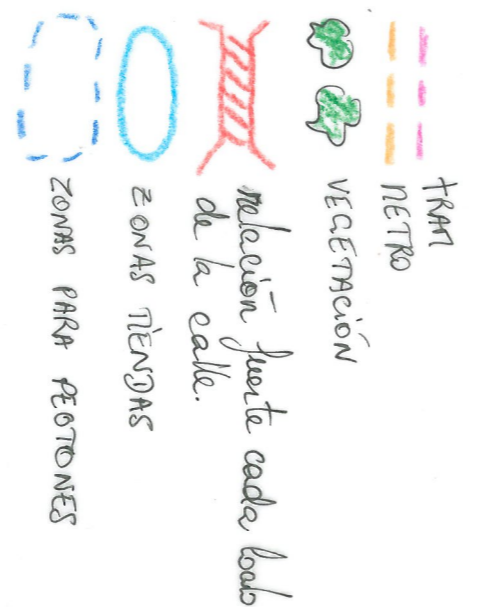 TRAM
METRO
VEGETACIÓN
relación fuerte cada lado
de la calle.
ZONAS TIENDAS
ZONAS PARA PEOTONES